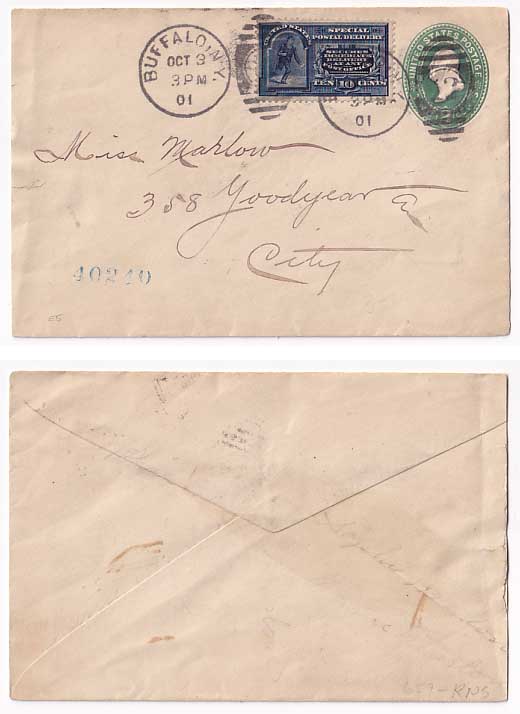 BUFFALO, N.Y.
OCT 3
3 PM
01
UNITED STATES
SPECIAL
POSTAL DELIVERY
SECURES
IMMEDIATE
DELIVERY
AT ANY
POST OFFICE
TEN 10 CENTS
3 PM
01
UNITED STATES POSTAGE
Miss Marlow
358 Goodyear
City
40240
E5